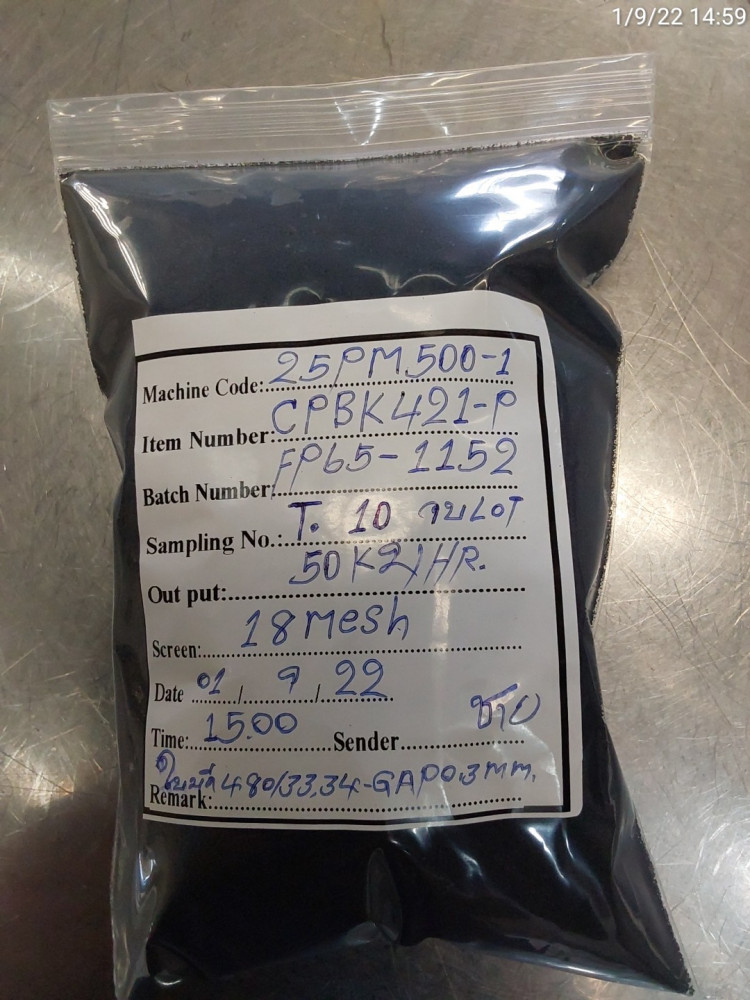 1/9/22 14:59
Machine Code: 25PM500-1
Item Number: CPBK421-P
Batch Number: FP65-1152
Sampling No.: T. 10 จบLOT
Out put: 50 Kg/HR.
Screen: 18 mesh
Date 01 / 9 / 22
Time: 15.00 Sender ชาย
Remark: ใบมีด 480/33,34-GAP0.3mm.